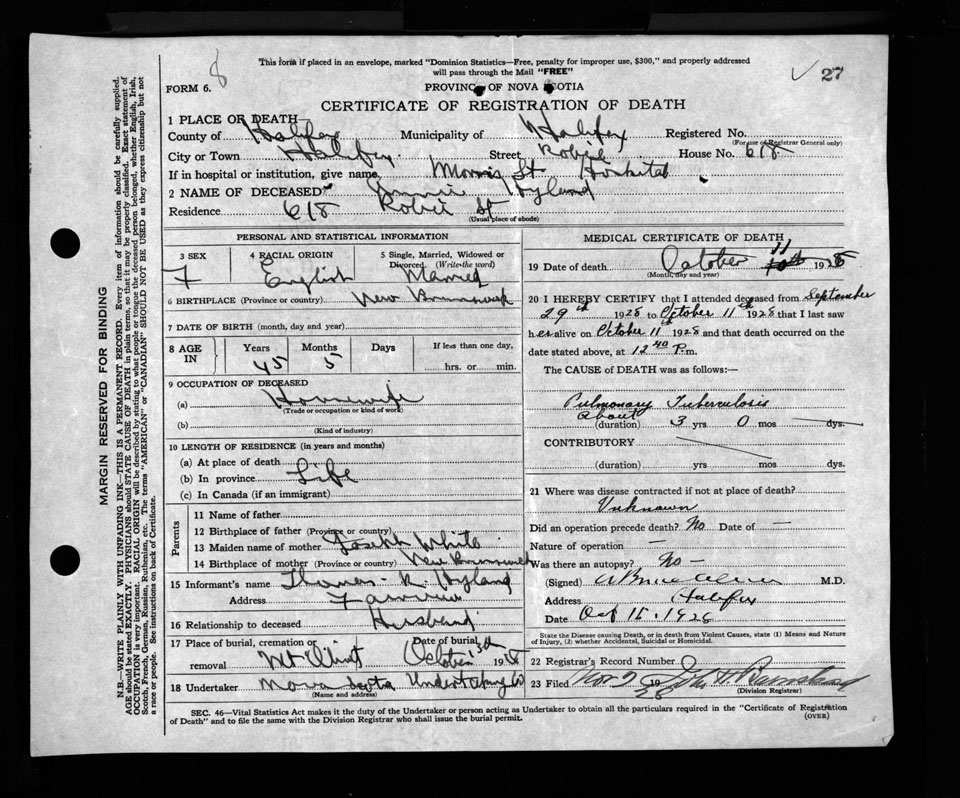 8
This form if placed in an envelope, marked "Dominion Statistics—Free, penalty for improper use, $300," and properly addressed
will pass through the Mail "FREE"
27
FORM 6.
PROVINCE OF NOVA SCOTIA
CERTIFICATE OF REGISTRATION OF DEATH
1 PLACE OF DEATH—
County of Halifax Municipality of Halifax Registered No.
(For use of Registrar General only)
City or Town Halifax Street Robie House No. 618
If in hospital or institution, give name Morris St Hospital
2 NAME OF DECEASED Hyland
Residence 618 Robie St
(Usual place of abode)
PERSONAL AND STATISTICAL INFORMATION
3 SEX
F
4 RACIAL ORIGIN
English
5 Single, Married, Widowed or
Divorced. (Write the word)
Married
6 BIRTHPLACE (Province or country) New Brunswick
7 DATE OF BIRTH (month, day and year)
8 AGE IN
Years Months Days If less than one day,
45 5 hrs. or min.
9 OCCUPATION OF DECEASED
(a) Housewife
(Trade or occupation or kind of work)
(b)
(Kind of industry)
10 LENGTH OF RESIDENCE (in years and months)
(a) At place of death
(b) In province Life
(c) In Canada (if an immigrant)
Parents
11 Name of father
12 Birthplace of father (Province or country)
13 Maiden name of mother Joseph White
14 Birthplace of mother (Province or country) New Brunswick
15 Informant's name Thomas Hyland
Address Fairview
16 Relationship to deceased Husband
17 Place of burial, cremation or removal Mt Olivet
Date of burial October 13th 1928
18 Undertaker Nova Scotia Undertaking Co
(Name and address)
MEDICAL CERTIFICATE OF DEATH
19 Date of death October 11 10th 1928
(Month, day and year)
20 I HEREBY CERTIFY that I attended deceased from September
29th 1928 to October 11th 1928 that I last saw
her alive on October 11th 1928 and that death occurred on the
date stated above, at 12 40 P.m.
The CAUSE of DEATH was as follows:—
Pulmonary Tuberculosis
About
(duration) 3 yrs 0 mos — dys.
CONTRIBUTORY
(duration) yrs mos dys.
21 Where was disease contracted if not at place of death?
Unknown
Did an operation precede death? No Date of —
Nature of operation —
Was there an autopsy? No —
(Signed) M.D.
Address Halifax
Date Oct 15. 1928
State the Disease causing Death, or in death from Violent Causes, state (1) Means and Nature
of Injury, (2) whether Accidental, Suicidal or Homicidal.
22 Registrar's Record Number
23 Filed Nov 1928
(Division Registrar)
SEC. 46—Vital Statistics Act makes it the duty of the Undertaker or person acting as Undertaker to obtain all the particulars required in the "Certificate of Registration
of Death" and to file the same with the Division Registrar who shall issue the burial permit.
(OVER)
MARGIN RESERVED FOR BINDING
N.B.—WRITE PLAINLY WITH UNFADING INK—THIS IS A PERMANENT RECORD. Every item of information should be carefully supplied.
AGE should be stated EXACTLY. PHYSICIANS should STATE CAUSE OF DEATH in plain terms, so that it may be properly classified. Exact statement of
OCCUPATION is very important. RACIAL ORIGIN will be described by stating to what people or tongue the deceased person belonged, whether English, Irish,
Scotch, French, German, Russian, Ruthenian, etc. The terms "AMERICAN" or "CANADIAN" SHOULD NOT BE USED as they express citizenship but not
a race or people. See instructions on back of Certificate.